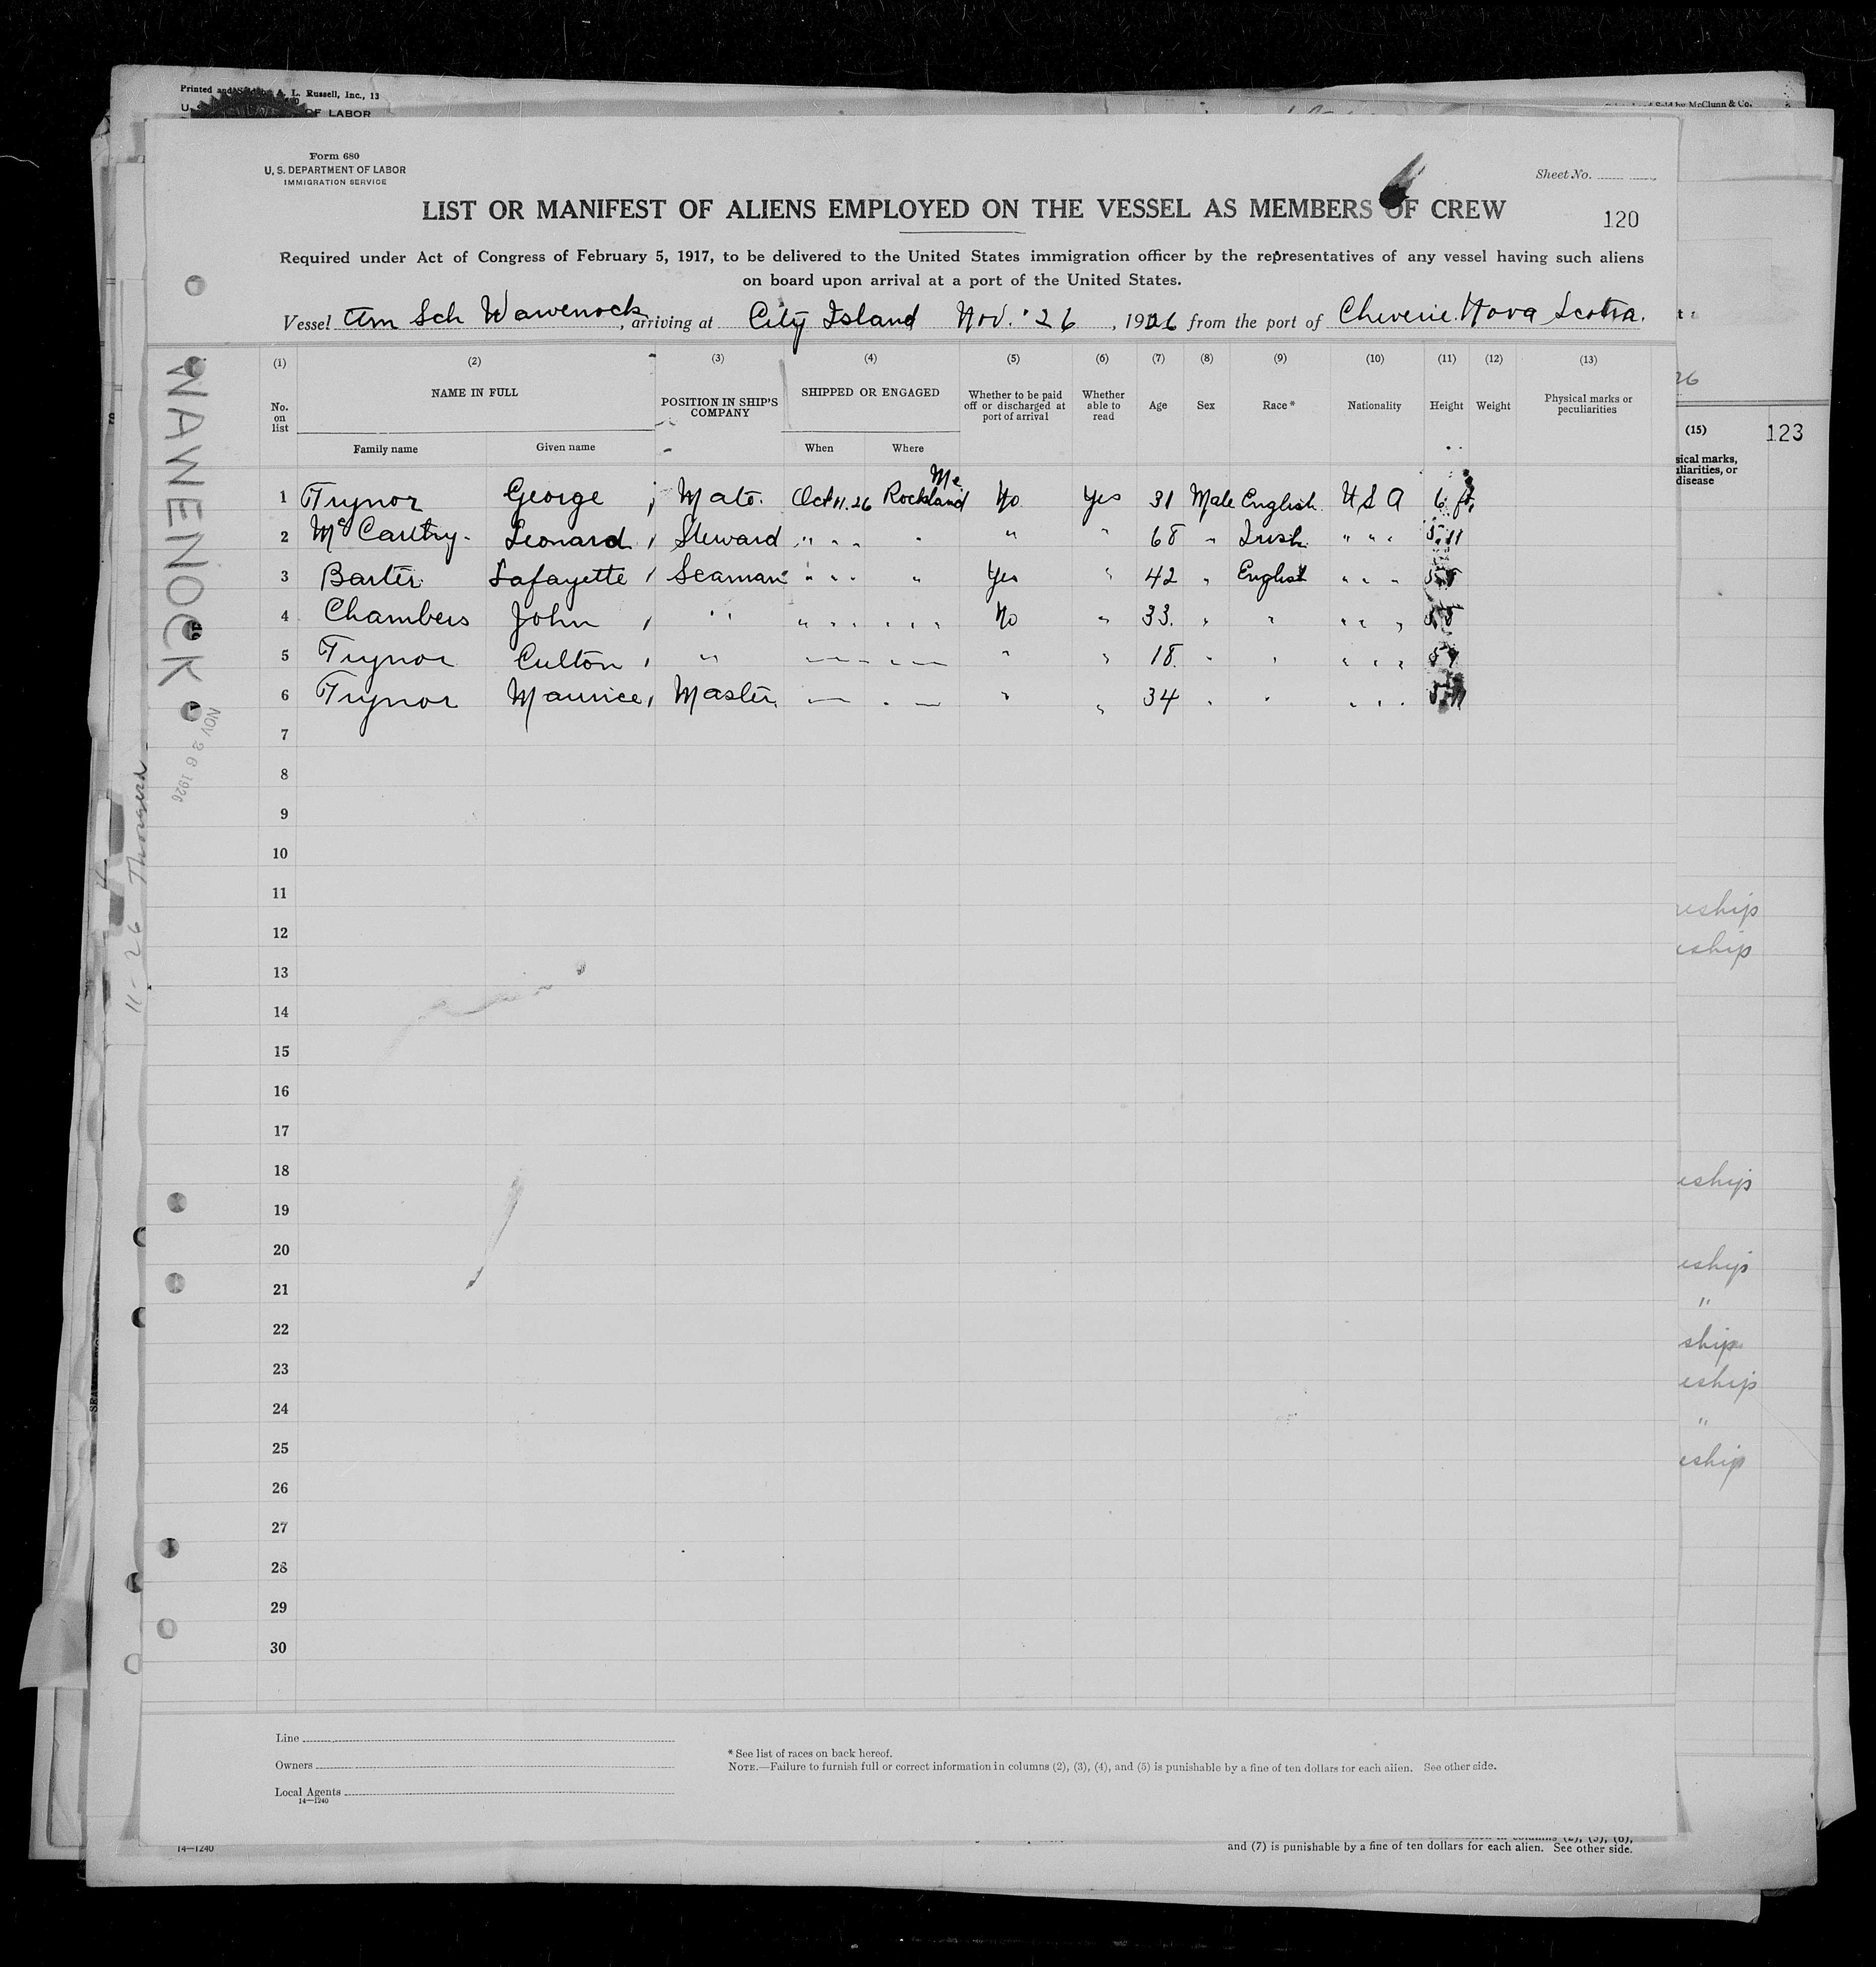 Printed and Sold by A. L. Russell, Inc., 13
OF LABOR
Sold by McClunn & Co.
Form 680
U. S. DEPARTMENT OF LABOR
IMMIGRATION SERVICE
Sheet No.
LIST OR MANIFEST OF ALIENS EMPLOYED ON THE VESSEL AS MEMBERS OF CREW
120
Required under Act of Congress of February 5, 1917, to be delivered to the United States immigration officer by the representatives of any vessel having such aliens
on board upon arrival at a port of the United States.
Vessel Am Sch Wawenock, arriving at City Island Nov. 26, 1926 from the port of Cheverie. Nova Scotia.
(1) (2) (3) (4) (5) (6) (7) (8) (9) (10) (11) (12) (13)
No. on list NAME IN FULL POSITION IN SHIP'S COMPANY SHIPPED OR ENGAGED Whether to be paid off or discharged at port of arrival Whether able to read Age Sex Race* Nationality Height Weight Physical marks or peculiarities
Family name Given name When Where
1 Trynor George Mate. Oct 11. 26 Rockland Me. No Yes 31 Male English U S A 6 ft.
2 McCarthy. Leonard Steward " " " " " " 68 " Irish " " " 5.11
3 Barter Lafayette Seaman " " " " Yes " 42 " English " " "
4 Chambers John " " " " " " " No " 33. " " " " "
5 Trynor Culton " " " 18. " " " " "
6 Trynor Maurice Master " " " 34 " " " " "
7
8
9
10
11
12
13
14
15
16
17
18
19
20
21
22
23
24
25
26
27
28
29
30
Line
Owners
Local Agents
14—1240
* See list of races on back hereof.
NOTE.—Failure to furnish full or correct information in columns (2), (3), (4), and (5) is punishable by a fine of ten dollars for each alien. See other side.
WAWENOCK
NOV 26 1926
11-26
26
(15)
123
sical marks,
liarities, or
disease
eship
eship
eship
eship
"
ship
eship
"
eship
14—1240
and (7) is punishable by a fine of ten dollars for each alien. See other side.